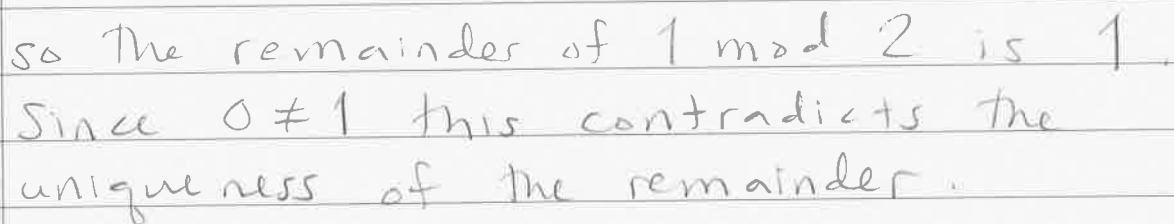 so the remainder of 1 mod 2 is 1.
Since 0 ≠ 1 this contradicts the
uniqueness of the remainder.